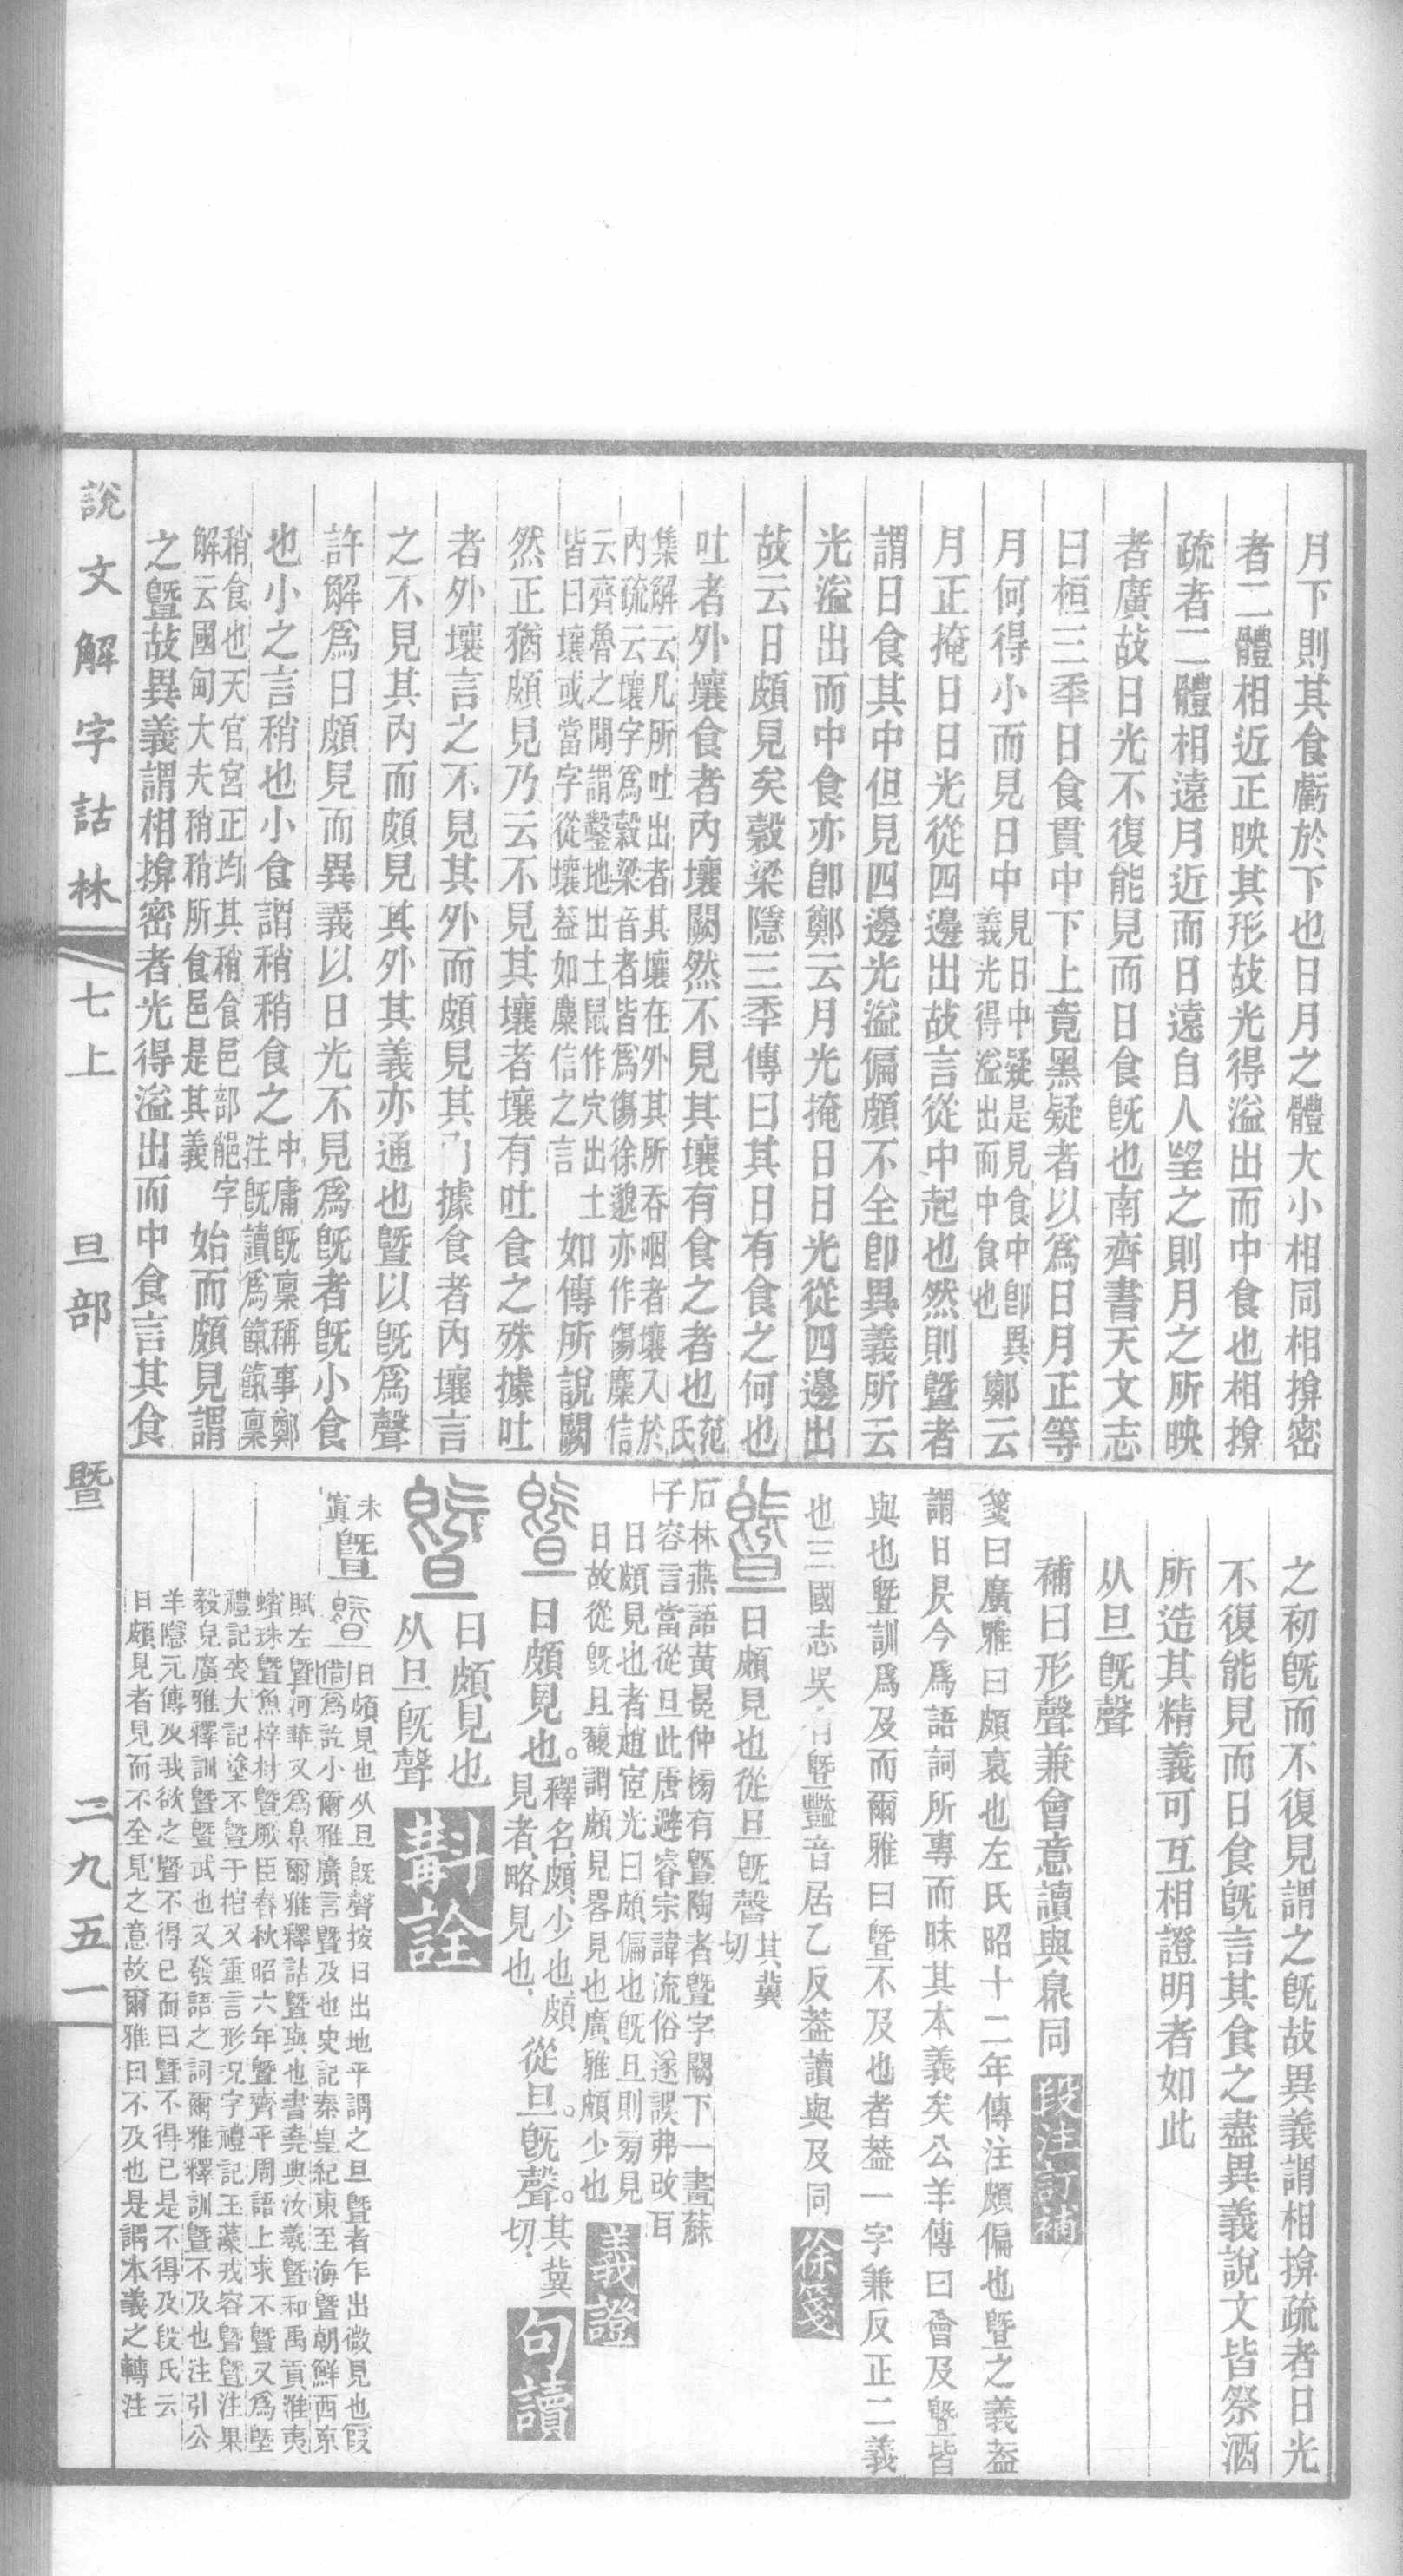 月下則其食虧於下也日月之體大小相同相揜密
者二體相近正映其形故光得溢出而中食也相揜
疏者二體相遠月近而日遠自人望之則月之所映
者廣故日光不復能見而日食旣也南齊書天文志
曰桓三秊日食貫中下上竟黑疑者以爲日月正等
月何得小而見日中
見日中疑是見食中卽異
義光得溢出而中食也
鄭云
月正掩日日光從四邊出故言從中起也然則曁者
謂日食其中但見四邊光溢偏頗不全卽異義所云
光溢出而中食亦卽鄭云月光掩日日光從四邊出
故云日頗見矣穀梁隱三秊傳曰其日有食之何也
吐者外壤食者內壤闕然不見其壤有食之者也
范氏
集解云凡所吐出者其壤在外其所吞咽者壤入於
內疏云壤字爲穀梁音者皆爲傷徐邈亦作傷麋信
云齊魯之閒謂鑿地出土鼠作穴出土
皆曰壤或當字從壤葢如麋信之言
如傳所說闕
然正猶頗見乃云不見其壤者壤有吐食之殊據吐
者外壤言之不見其外而頗見其內據食者內壤言
之不見其內而頗見其外其義亦通也曁以旣爲聲
許解爲日頗見而異義以日光不見爲旣者旣小食
也小之言稍也小食謂稍稍食之
中庸旣稟稱事鄭
注旣讀爲餼餼稟
稍食也天官宮正均其稍食邑部䣊字
解云國甸大夫稍稍所食邑是其義
始而頗見謂
之曁故異義謂相揜密者光得溢出而中食言其食
之初旣而不復見謂之旣故異義謂相揜疏者日光
不復能見而日食旣言其食之盡異義說文皆祭酒
所造其精義可互相證明者如此
从旦旣聲
補曰形聲兼會意讀與臮同
段注訂補
箋曰廣雅曰頗衺也左氏昭十二年傳注頗偏也曁之義葢
謂日昃今爲語詞所專而昧其本義矣公羊傳曰會及曁皆
與也曁訓爲及而爾雅曰曁不及也者葢一字兼反正二義
也三國志吳有曁豔音居乙反葢讀與及同
徐箋
曁
日頗見也從旦旣聲
其冀
切
石林燕語黃㫤仲榜有曁陶者曁字闕下一畫蘇
子容言當從旦此唐避睿宗諱流俗遂誤弗改
日頗見也者趙宧光曰頗偏也旣旦則㫄見
日故從旣旦馥謂頗見畧見也廣雅頗少也
義證
曁
日頗見也。
釋名頗少也頗
見者略見也
從旦旣聲。
其冀
切
句讀
曁
日頗見也
从旦旣聲
斠詮
未
眞
曁
曁
日頗見也从旦旣聲按日出地平謂之旦曁者乍出微見也叚
借爲訖小爾雅廣言曁及也史記秦皇紀東至海曁朝鮮西京
賦左曁河華又爲臮爾雅釋詁曁與也書堯典汝羲曁和禹貢淮夷
蠙珠曁魚梓材曁厥臣春秋昭六年曁齊平周語上求不曁又爲墍
禮記喪大記塗不曁于棺又重言形況字禮記玉藻戎容曁曁注果
毅皃廣雅釋訓曁曁武也又發語之詞爾雅釋訓曁不及也注引公
羊隱元傳及我欲之曁不得已而曰曁不得已是不得及段氏云
日頗見者見而不全見之意故爾雅曰不及也是謂本義之轉注
說文解字詁林
七上
旦部
曁
二九五一